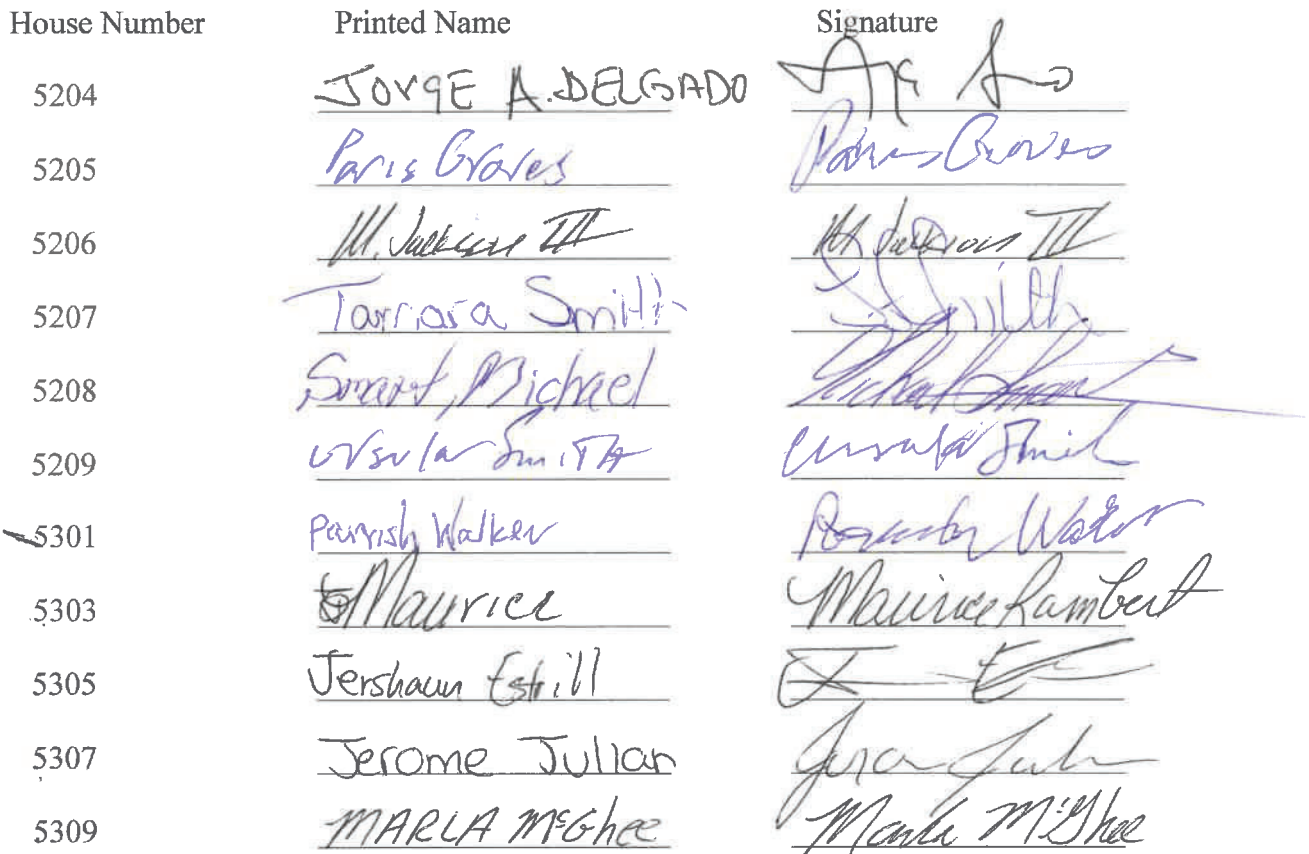 House Number Printed Name Signature
5204 JORGE A. DELGADO
5205 Paris Graves Paris Graves
5206 M. Jackson III M Jackson III
5207 Tamara Smith Smith
5208 Smart, Michael Michael Smart
5209 Ursula Smith Ursula Smith
5301 Parrish Walker Walker
5303 Maurice Maurice Lambert
5305 Jershaun Estill
5307 Jerome Julian
5309 MARLA McGhee Marla McGhee